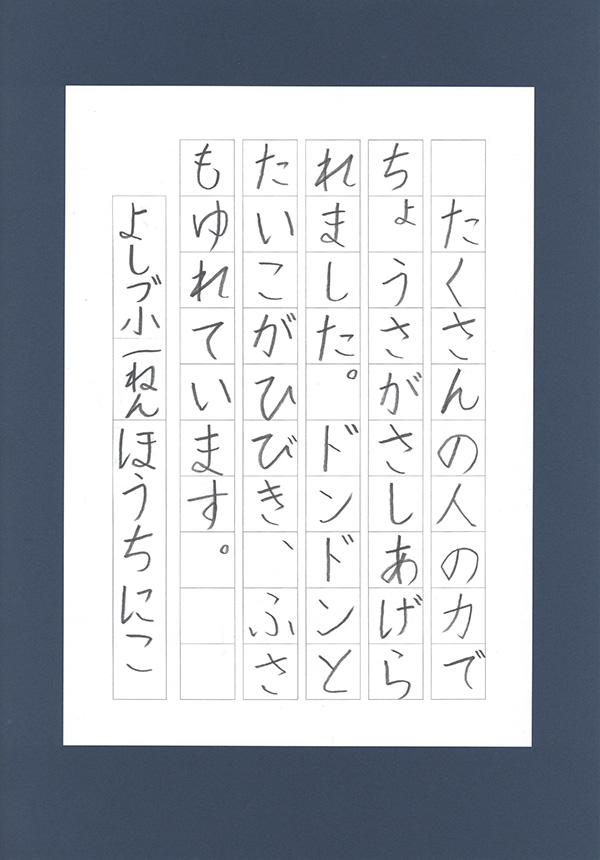 たくさんの人の力で
ちょうさがさしあげら
れました。ドンドンと
たいこがひびき、ふさ
もゆれています。
よしづ小一ねんほうちにこ